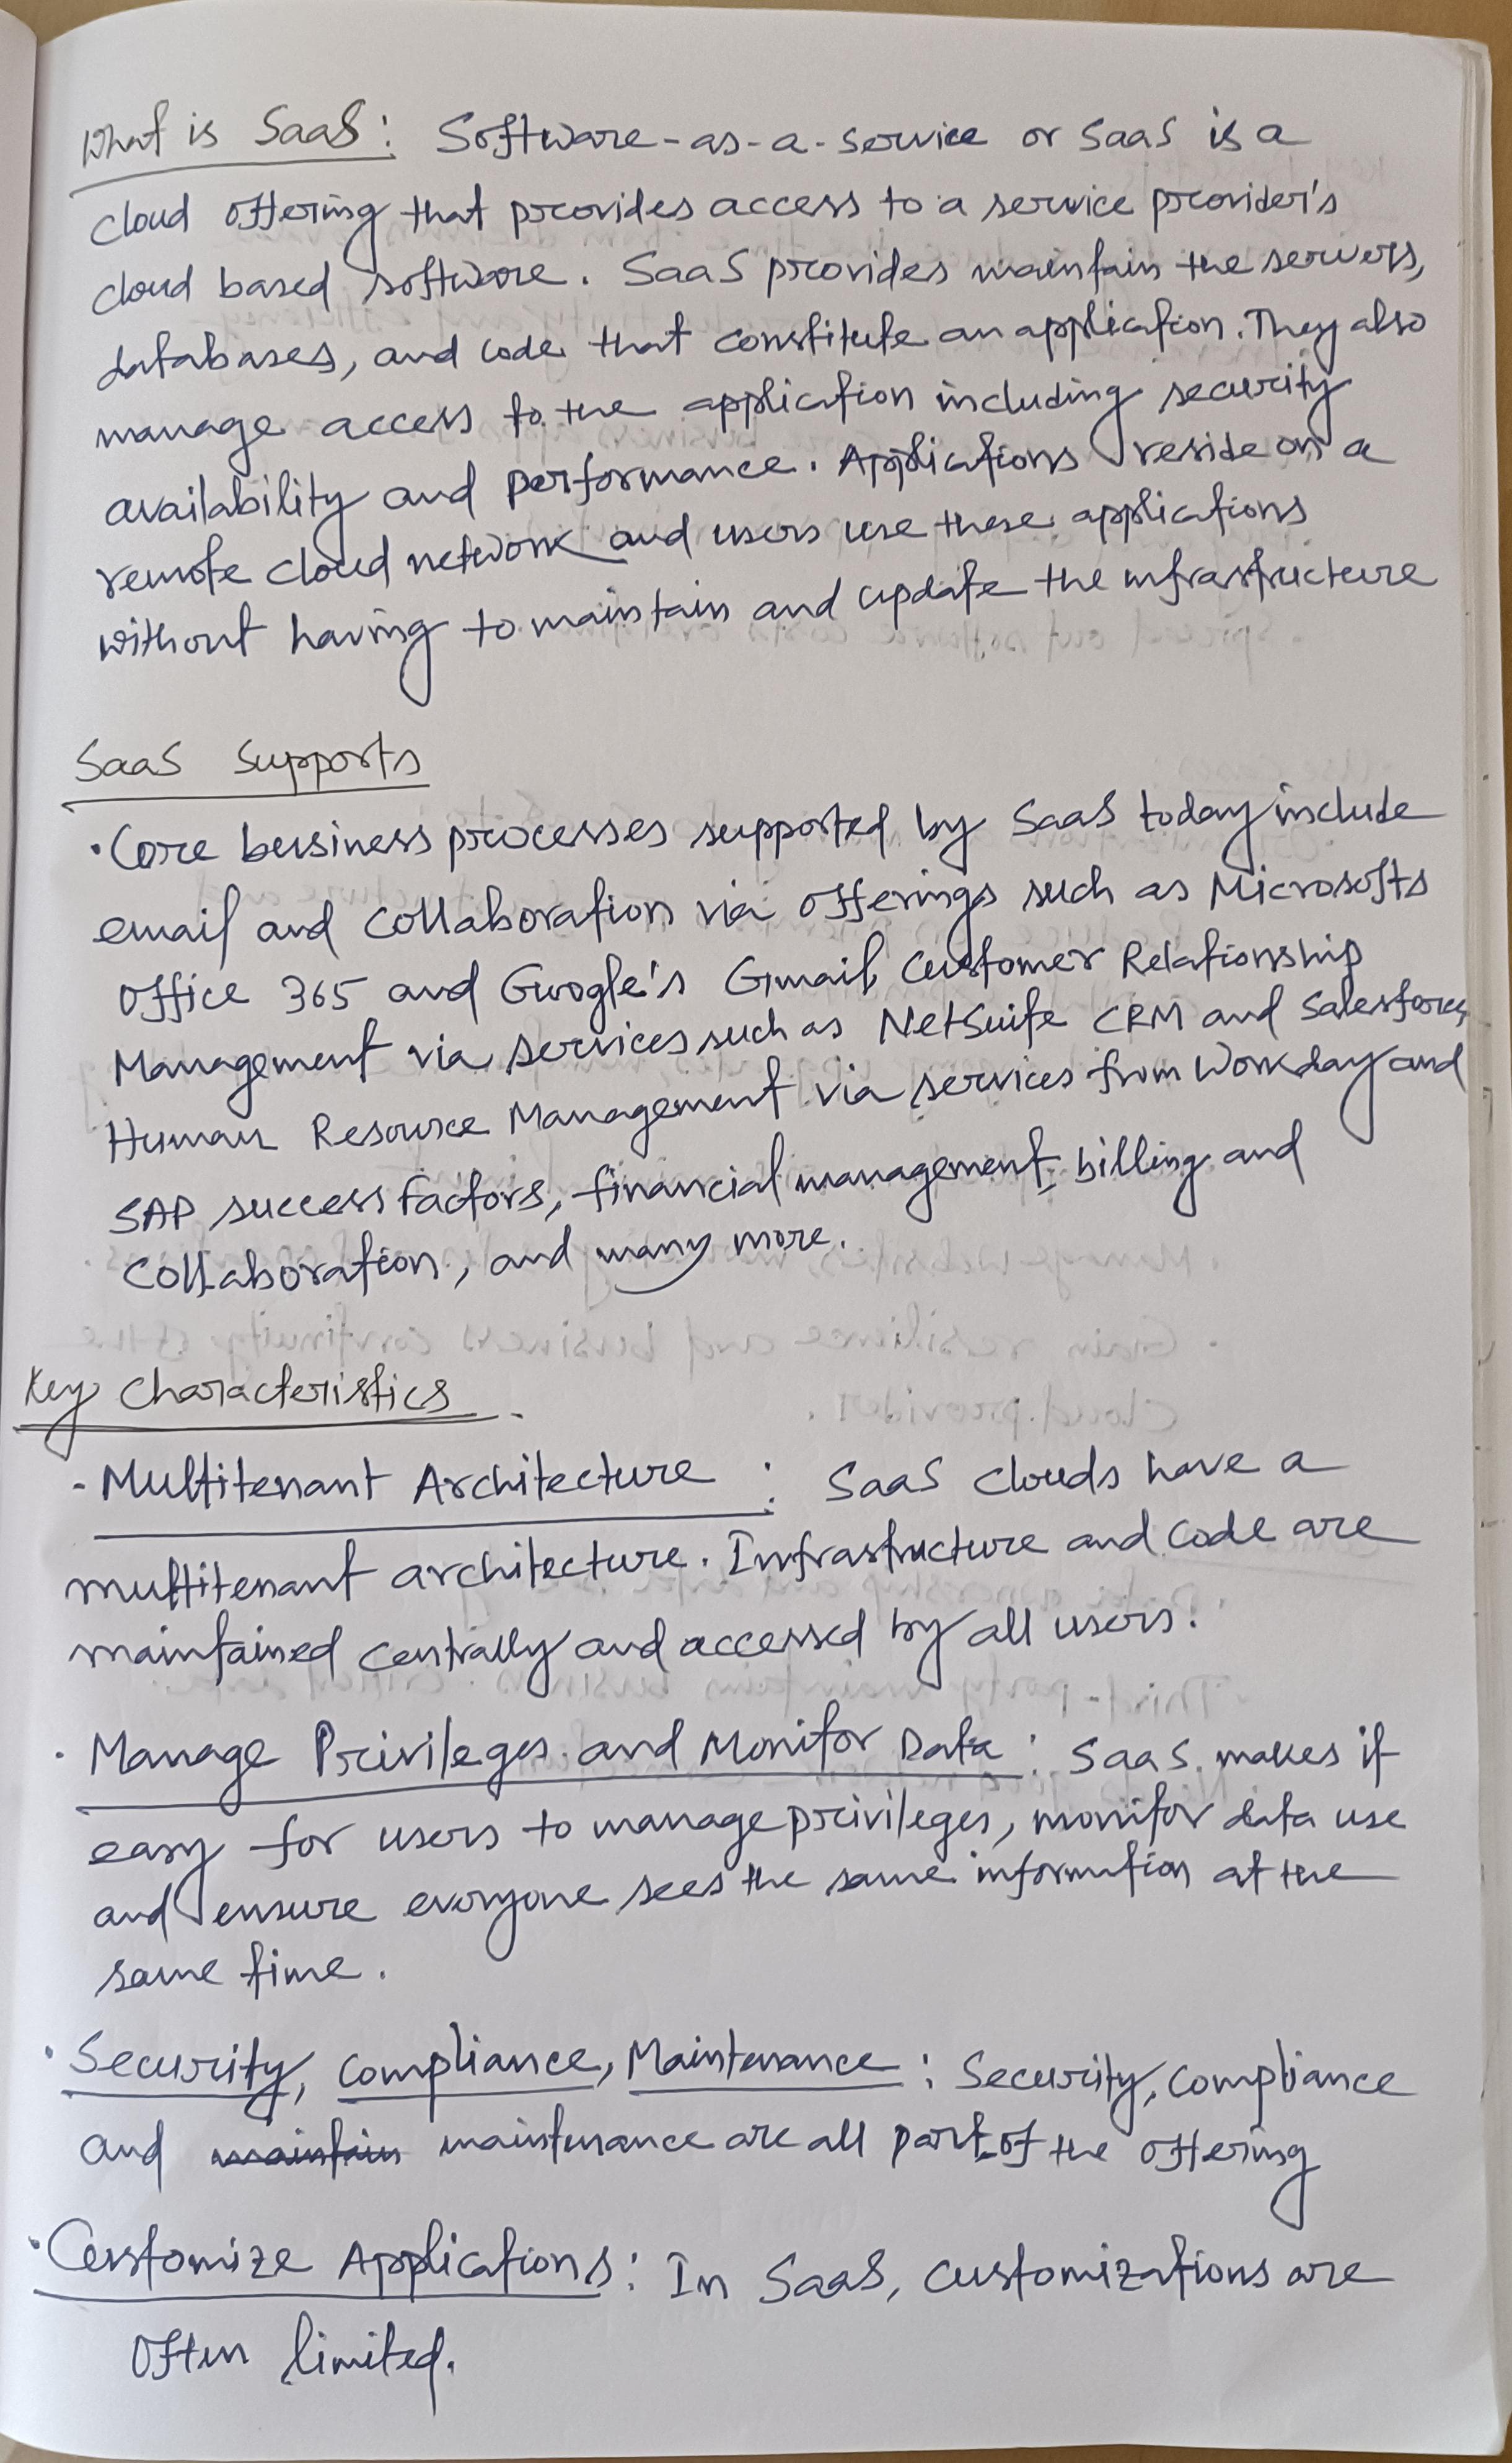 What is SaaS: Software-as-a-service or SaaS is a
cloud offering that provides access to a service provider's
cloud based software. SaaS provides maintain the servers,
databases, and code that constitute an application. They also
manage access to the application including security
availability and performance. Applications reside on a
remote cloud network and users use these applications
without having to maintain and update the infrastructure
SaaS Supports
• Core business processes supported by SaaS today include
email and collaboration via offerings such as Microsofts
Office 365 and Google's Gmail, Customer Relationship
Management via services such as NetSuite CRM and Salesforce,
Human Resource Management via services from Workday and
SAP success factors, financial management, billing and
Collaboration, and many more.
Key Characteristics
- Multitenant Architecture : SaaS clouds have a
multitenant architecture. Infrastructure and code are
maintained centrally and accessed by all users.
• Manage Privileges and Monitor Data : SaaS makes it
easy for users to manage privileges, monitor data use
and ensure everyone sees the same information at the
same time.
• Security, Compliance, Maintenance : Security, compliance
and maintain maintenance are all part of the offering
• Customize Applications : In SaaS, customizations are
often limited.